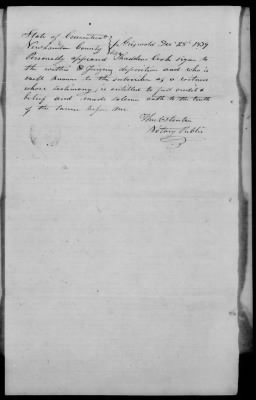 State of Connecticut
New London County } ss Griswold Dec 28th 1839
Personally appeared Thaddeus Cook signer to
the within & foregoing deposition and who is
well known to the subscriber as a witness
whose testimony is entitled to full credit &
belief and made solemn oath to the truth
of the same before me
Notary Public